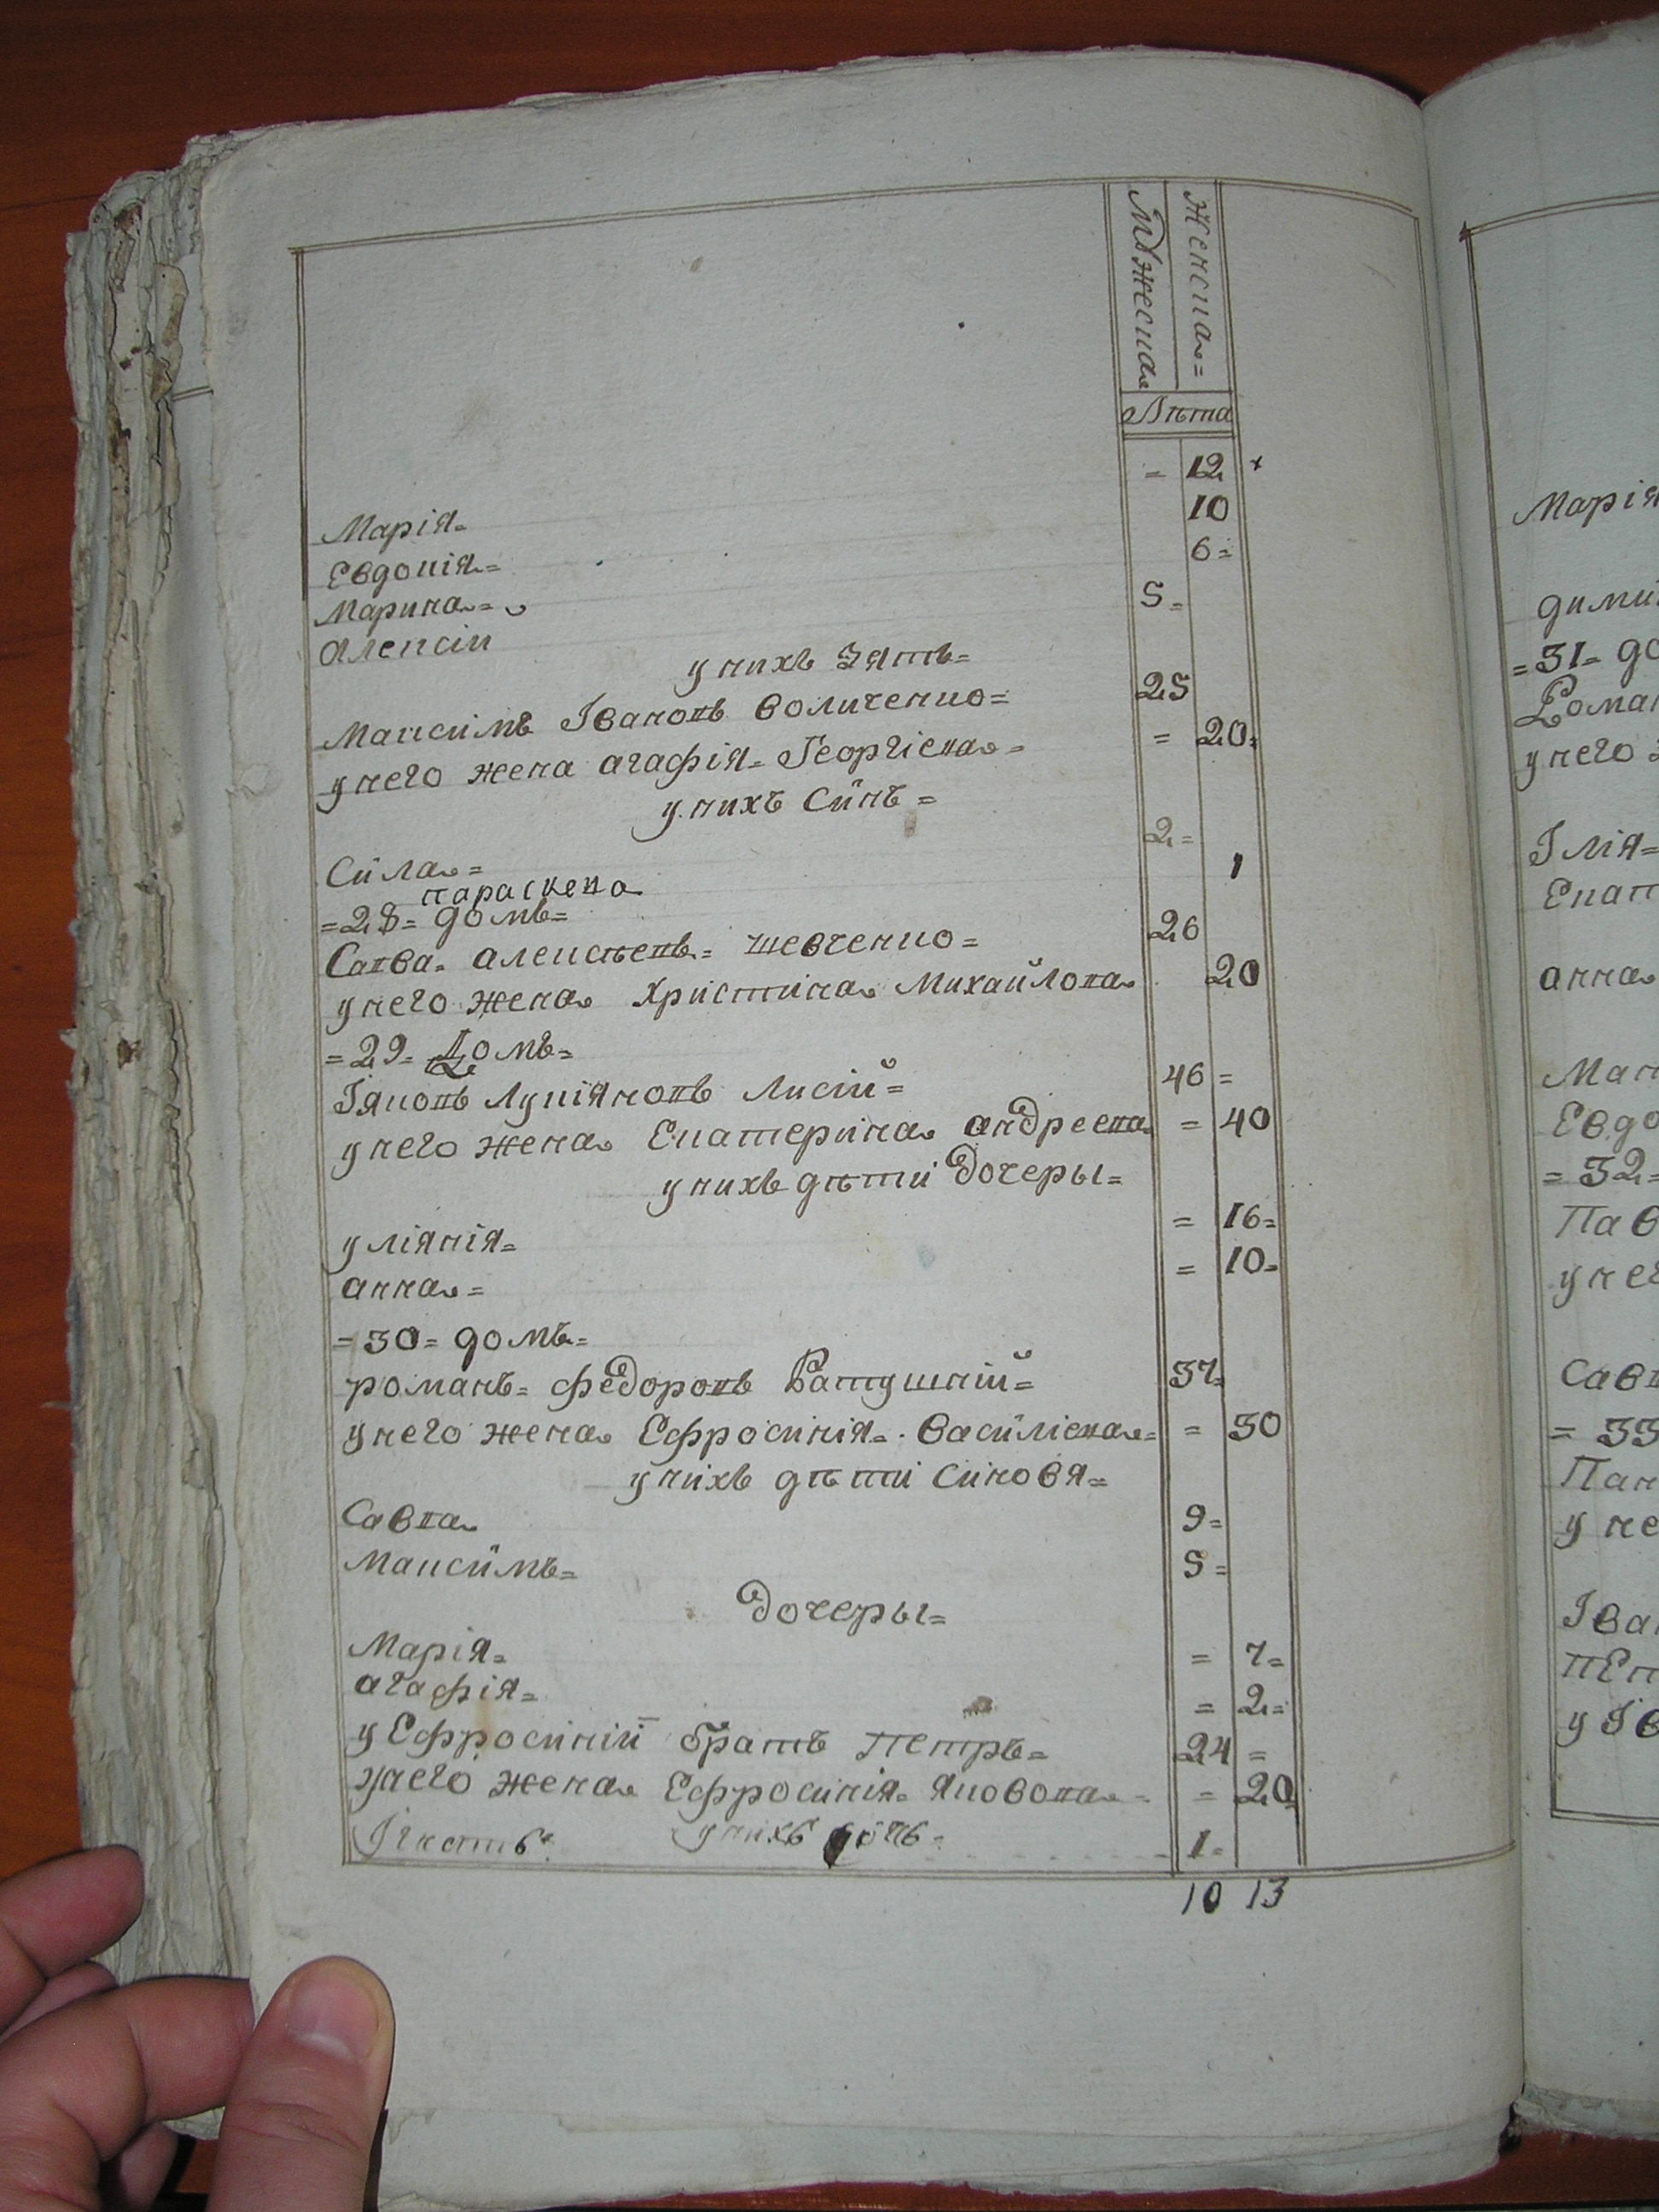 Мужеска
Женска =
Лѣта
Марія = = 12 +
Евдокія = 10
Марина = 6 =
Алексій 5 =
у нихъ зять =
Максимъ Івановъ Воличенко = 25
у него жена Агафія = Георгіева = = 20 =
у нихъ Синъ =
Сила = 2 =
параскева 1
= 28 = домъ =
Савва = Алексѣевъ = шевченко = 26
у него жена Христина Михайлова 20
= 29 = Домъ =
Іяковъ Лукіяновъ Лисій = 46 =
у него жена Екатерина андреева = 40
у нихъ дѣти Дочеры =
уліянія = = 16 =
анна = = 10 =
= 30 = домъ =
романъ = федоровъ Ратушній = 37 =
у него жена Ефросинія = Василіева = = 30
у нихъ дѣти Синовя =
Савва 9 =
Максимъ = 5 =
Дочеры =
Марія = = 7 =
агафія = = 2 =
у Ефросиніи братъ Петръ = 24 =
у него жена Ефросинія = Яковова = = 20 =
Ігнатъ = у нихъ 1 =
10 13
Марія
= 31 = до
Роман
у него
Ілія =
Екат
анна
Мак
Евдо
= 32 =
Пав
у нег
Сав
= 33
Пан
у не
Іва
у Ів